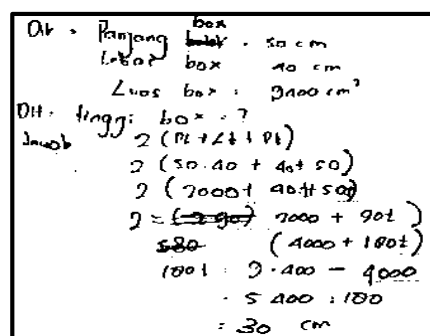 Dit. Panjang box . 50 cm
Lebar box 40 cm
Luas box : 9400 cm²
Dit. tinggi box = ?
Jawab 2 (Pl + Lt + Pt)
2 (50.40 + 40t 50)
2 (2000 + 40t + 50t)
2 = 2000 + 90t)
(4000 + 180t)
180t : 9.400 - 4000
. 5400 : 180
= 30 cm